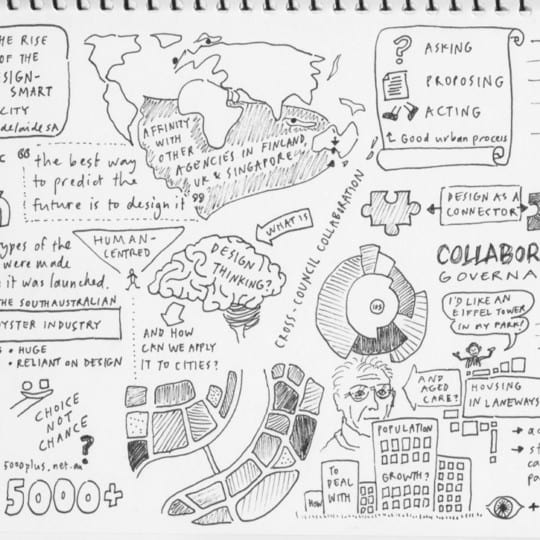 HE RISE
OF THE
ESIGN-
SMART
CITY
delaide SA
ASKING
PROPOSING
ACTING
Good urban process
AFFINITY
WITH
OTHER
AGENCIES IN FINLAND,
UK & SINGAPORE
"the best way
to predict the
future is to design it"
DESIGN AS A
CONNECTOR
CROSS-COUNCIL COLLABORATION
WHAT IS
DESIGN
THINKING?
HUMAN-
CENTRED
ypes of the
were made
e it was launched.
THE SOUTH AUSTRALIAN
OYSTER INDUSTRY
• HUGE
• RELIANT ON DESIGN
AND HOW
CAN WE APPLY
IT TO CITIES?
COLLABOR
GOVERNA
I'D LIKE AN
EIFFEL TOWER
IN MY PARK!
AND
AGED
CARE?
HOUSING
IN LANEWAYS
CHOICE
NOT
CHANCE
?
5000plus.net.au
5000+
POPULATION
GROWTH?
HOW
TO
DEAL
WITH